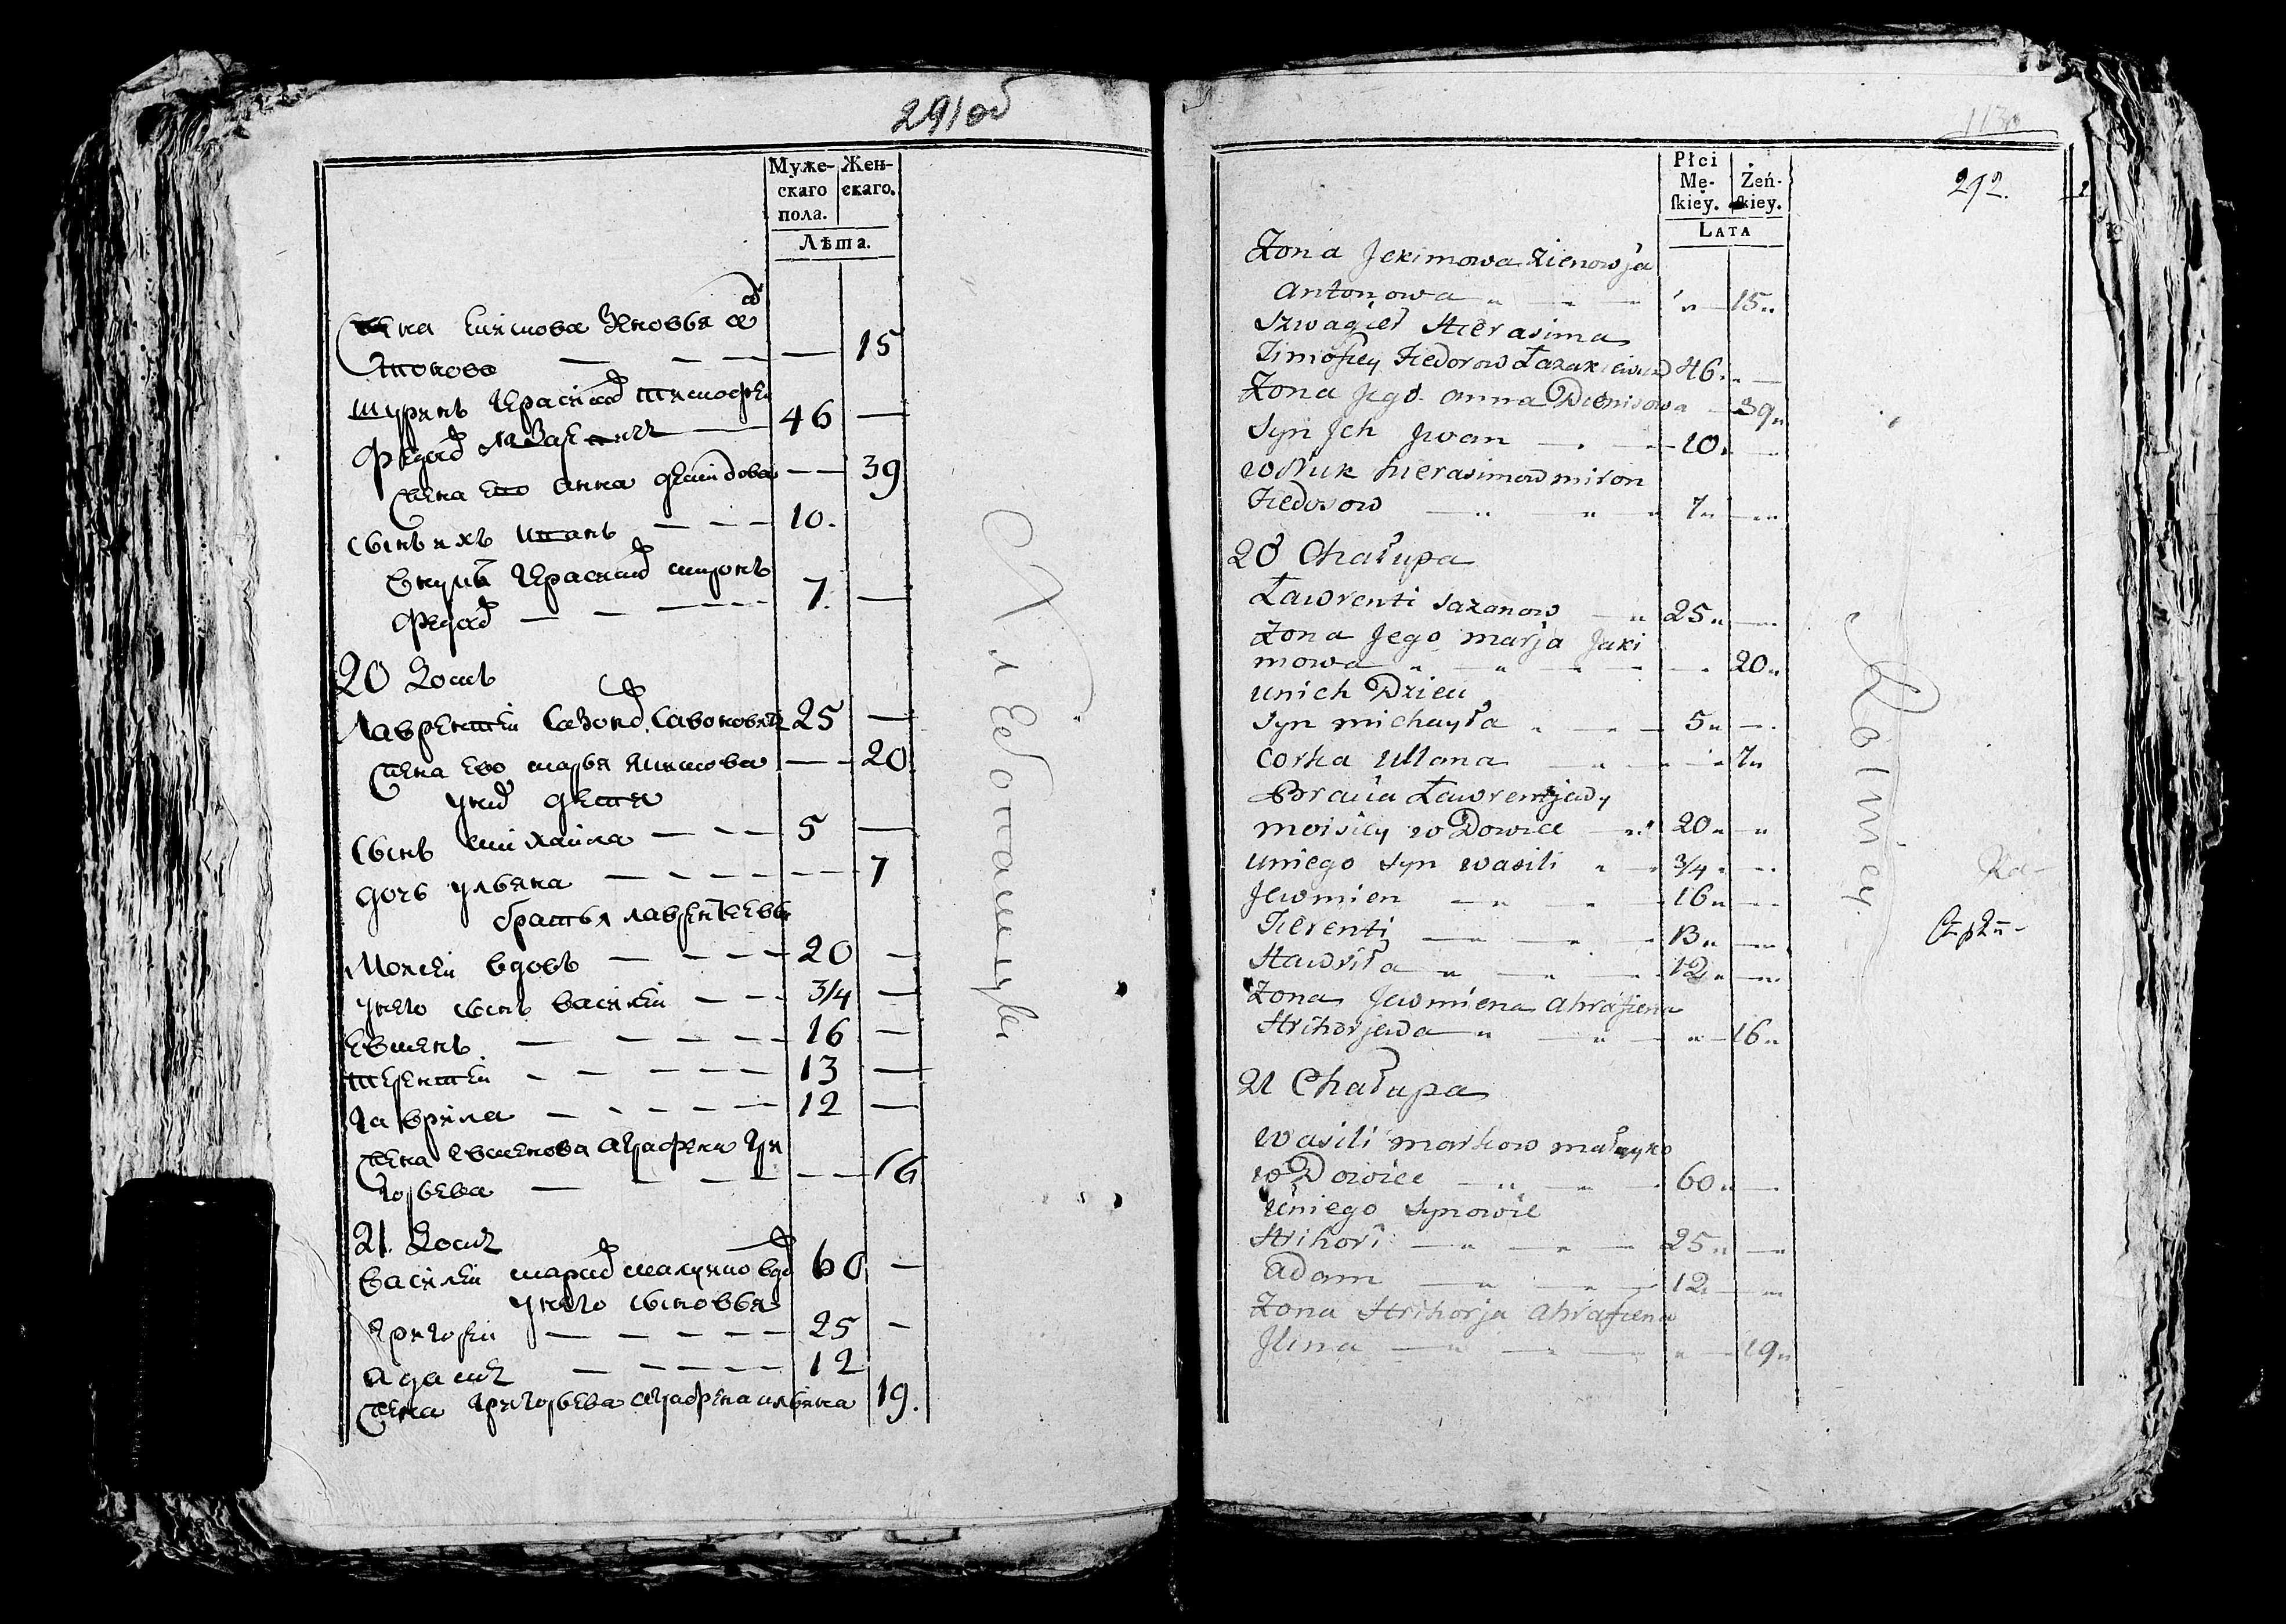 291 об
Муже-
скаго
пола.
Жен-
скаго.
Лѣта.
Жена Екимова Зѣновья
Антонова — — — — 15
Шуринъ Герасимов Тимофей
Федоров Лазаревич — 46 —
Жена ево Анна Демидова — — 39
Сынъ ихъ Иванъ — — — 10.
Внукъ Герасимов Миронъ
Федоров — — — 7. —
20 Домъ
Лаврентей Сазонов Савоновичъ 25 —
Жена ево Марья Якимова — — 20
У них дети
Сынъ Михайла — — — 5 —
Дочь Ульяна — — — — — 7
Братья Лаврентьевы
Моисей вдовъ — — — — 20 —
У него сынъ Василей — — — 3/4 —
Евменъ — — — — — 16 —
Терентей — — — — — 13 —
Гаврила — — — — — 12 —
Жена Евменова Аграфена Гри
горьева — — — — — — 16
21. Домъ
Василей Марков Малушко вдов 60 —
У него сыновья
Григорей — — — — — 25 —
Адамъ — — — — — 12
Жена Григорьева Аграфена Ильина 19.
Хлебопашцы
Płci
Mę-
ſkiey.
Żeń-
ſkiey.
LATA
292.
Żona Jekimowa Zienowja
Antonowa „ — — „ — 15„
Szwagier Hierasima
Timofiey Fiedorow Łazarewicz 46„ —
Żona Jego Anna Diemidowa — 39„
Syn Jch Jwan — „ — 10„ —
Wnuk Hierasimow Miron
Fiedorow — „ „ „ 7„ —„
20 Chałupa
Ławrenti Sazonow — „ 25„ —
Żona Jego Marja Jaki
mowa „ — „ — „ — — „ 20„
u nich Dzieci
Syn Michayła „ — „ — 5„ —
Corka Ullana — „ — „ — „ 7„
Bracia Ławrentjewy
Moisiey w Dowiec — „ 20„ — „
u niego Syn Wasili „ — 3/4 „ — „
Jewmien — „ — „ — 16„ — „
Tierenti — „ — „ 13„ — „
Hawriła „ — „ — 12„ —
Żona Jewmiena Ahrafiena
Hrihorjewa — „ — „ — „ — 16„
21 Chałupa
Wasili Markow Małuszko
w Dowiec — „ — „ 60„ —
u niego Synowie
Hrihori — „ — „ — 25„ —
Adam — „ — 12„ — „
Żona Hrihorja Ahrafiena
Jlina — „ — „ — „ — 19„
Rolniey